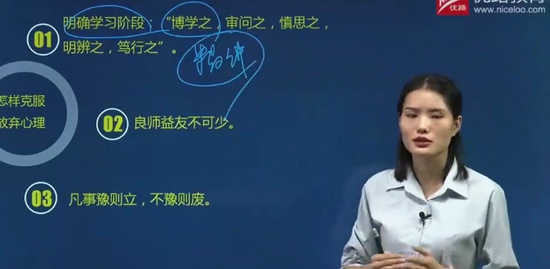 优路教育
优路 www.niceloo.com
01 明确学习阶段：“博学之，审问之，慎思之，
明辨之，笃行之”。
怎样克服
放弃心理
02 良师益友不可少。
03 凡事豫则立，不豫则废。